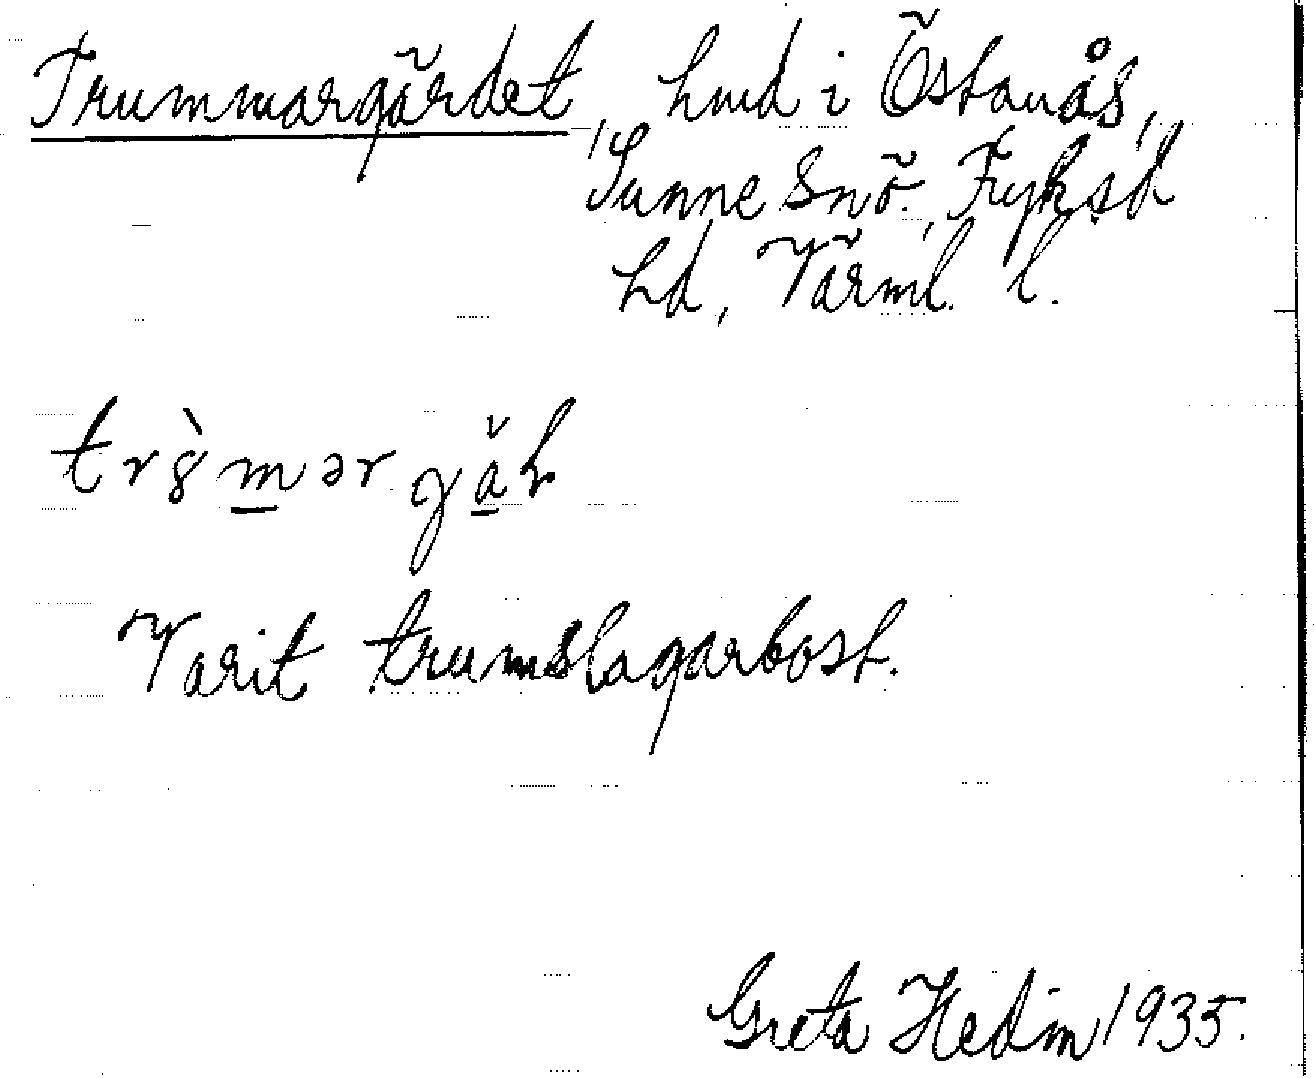 Trummargärdet, hmd i Östanås,
Sunne Snö., Fryksd
hd, Värml. l.
trò̀mər gäɫ
Varit trumslagarbost.
Greta Hedin 1935.